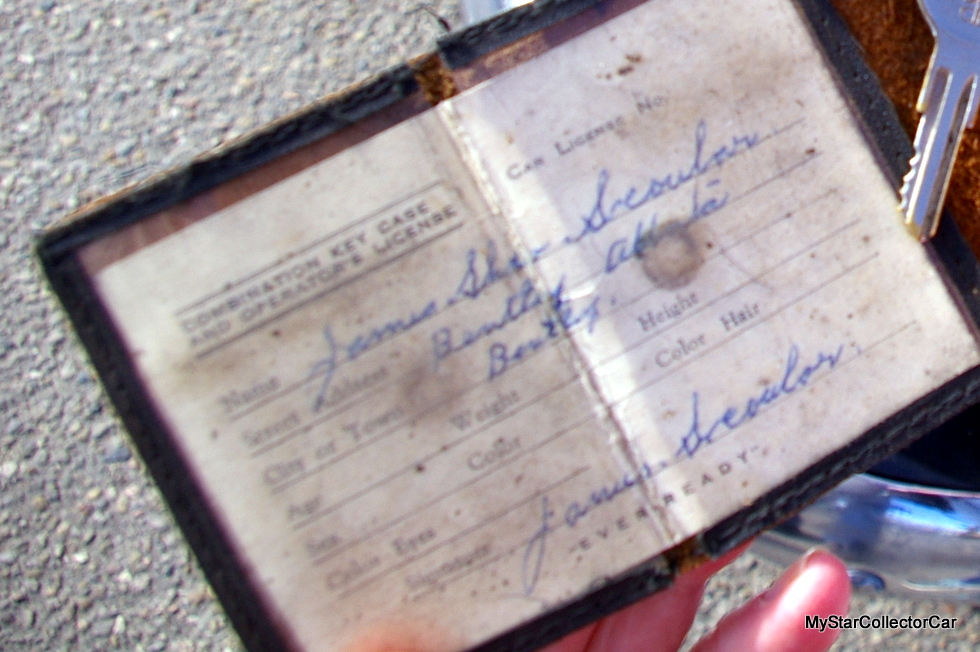 Car License No.
COMBINATION KEY CASE
AND OPERATOR'S LICENSE
Name James Shaw Scoular.
Street Adress Bentley Alberta
City or Town Bentley.
Age Weight Height
Sex Color Color Hair
Color Eyes
Signature James Scoular.
"EVER READY"
MyStarCollectorCar